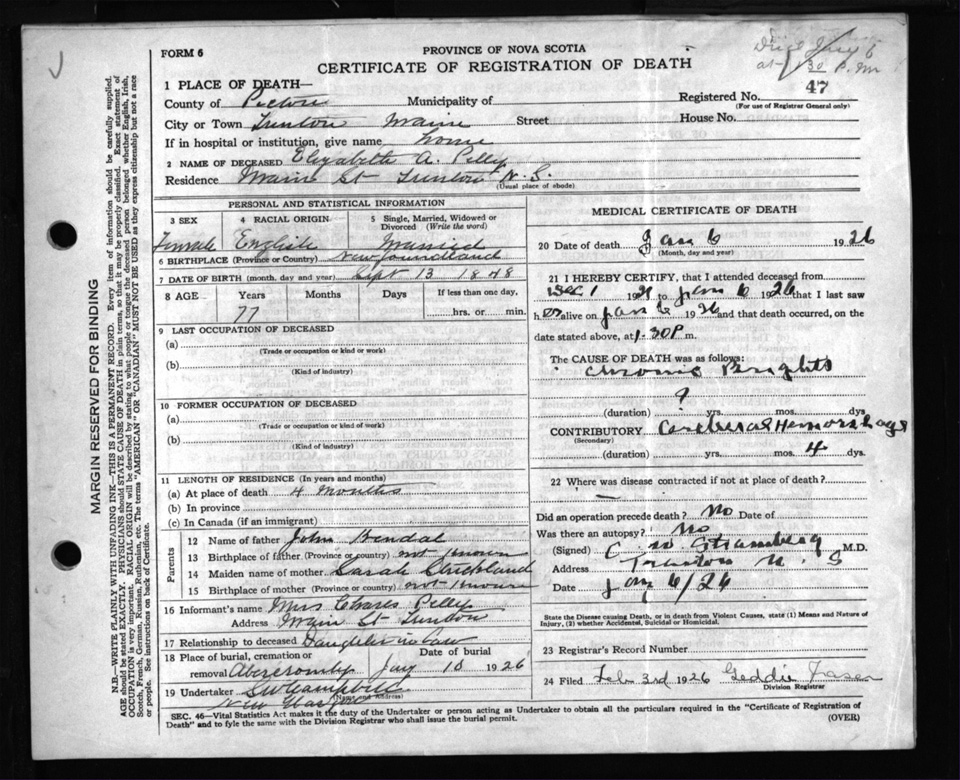 FORM 6
PROVINCE OF NOVA SCOTIA
CERTIFICATE OF REGISTRATION OF DEATH
Died Jany 6
at 1.30 P.M
1 PLACE OF DEATH—
County of Pictou Municipality of
Registered No. 47
(For use of Registrar General only)
City or Town Trenton Maine Street House No.
If in hospital or institution, give name home
2 NAME OF DECEASED Elizabeth A. Pelly
Residence Maine St Trenton N. S.
(Usual place of abode)
PERSONAL AND STATISTICAL INFORMATION
3 SEX 4 RACIAL ORIGIN 5 Single, Married, Widowed or Divorced (Write the word)
Female English Married
6 BIRTHPLACE (Province or Country) Newfoundland
7 DATE OF BIRTH (month, day and year) Sept 13 1848
8 AGE Years Months Days If less than one day,
77 hrs. or min.
9 LAST OCCUPATION OF DECEASED
(a)
(Trade or occupation or kind or work)
(b)
(Kind of industry)
10 FORMER OCCUPATION OF DECEASED
(a)
(Trade or occupation or kind of work)
(b)
(Kind of industry)
11 LENGTH OF RESIDENCE (In years and months)
(a) At place of death 4 months
(b) In province
(c) In Canada (if an immigrant)
Parents
12 Name of father John
13 Birthplace of father (Province or country) not known
14 Maiden name of mother Sarah Strickland
15 Birthplace of mother (Province or country) not known
16 Informant's name Mrs Charles Pelly
Address Main St Trenton
17 Relationship to deceased Daughter in law
18 Place of burial, cremation or removal Abercromby Date of burial Jay 10 1926
19 Undertaker S W Campbell
(Name and Address)
New Glasgow
MEDICAL CERTIFICATE OF DEATH
20 Date of death Jan 6 1926
(Month, day and year)
21 I HEREBY CERTIFY, that I attended deceased from
Dec 1 19 to Jan 6 1926 that I last saw
her alive on Jan 6 1926 and that death occurred, on the
date stated above, at 1.30 P m.
The CAUSE OF DEATH was as follows:
Chronic Brights
?
(duration) yrs. mos. days
CONTRIBUTORY Cerebral Hemorrhage
(Secondary)
(duration) yrs. mos. 4 dys.
22 Where was disease contracted if not at place of death?
—
Did an operation precede death? No Date of
Was there an autopsy? No
(Signed) C W Stramberg M.D.
Address Trenton N. S
Date Jany 6/26
State the Disease causing Death, or in death from Violent Causes, state (1) Means and Nature of
Injury, (2) whether Accidental, Suicidal or Homicidal.
23 Registrar's Record Number
24 Filed Feb 3rd 1926 Geddie Fraser
Division Registrar
SEC. 46—Vital Statistics Act makes it the duty of the Undertaker or person acting as Undertaker to obtain all the particulars required in the "Certificate of Registration of
Death" and to fyle the same with the Division Registrar who shall issue the burial permit.
(OVER)
MARGIN RESERVED FOR BINDING
N.B.—WRITE PLAINLY WITH UNFADING INK—THIS IS A PERMANENT RECORD. Every item of information should be carefully supplied.
AGE should be stated EXACTLY. PHYSICIANS should STATE CAUSE OF DEATH in plain terms, so that it may be properly classified. Exact statement of
OCCUPATION is very important. RACIAL ORIGIN will be described by stating to what people or tongue the deceased person belonged whether English, Irish,
Scotch, French, German, Russian, Ruthenian, etc. The terms "AMERICAN" OR "CANADIAN" MUST NOT BE USED as they express citizenship but not a race
or people. See instructions on back of Certificate.